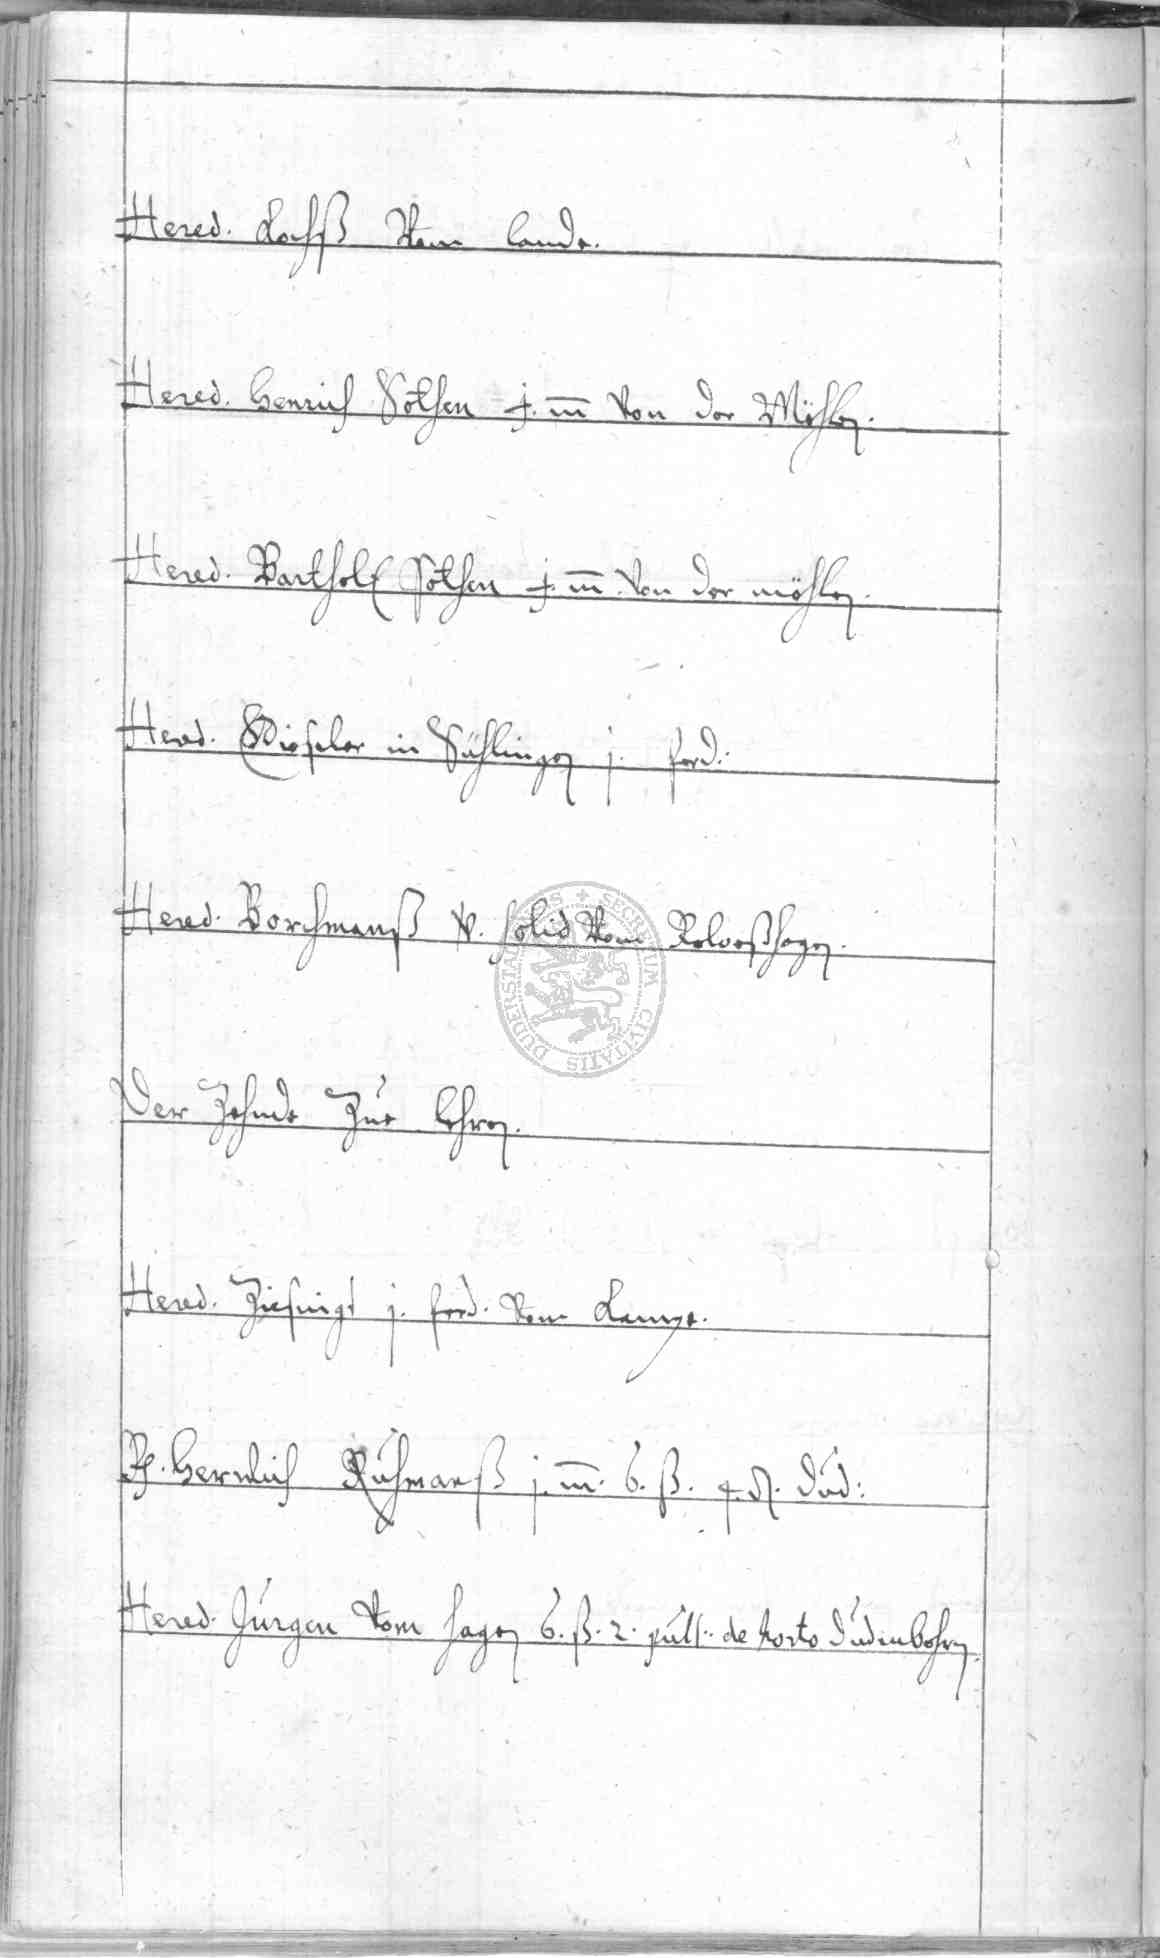 Hered. Kochß Vom Lande.
Hered. Henrich Sothen j. m̅ Von der Möhlen.
Hered. Barthold Sothen j. m̅. Von der möhlen.
Hered. Gieseler in Sühlingen j. ferd:
Hered. Borchmanß v. solid Vom Rolveßhagen.
Der Zehnde Zue Lehren.
Hered. j. ferd. Vom Kampe.
H. Herwich Rühmanß j. m̅. 6. ß. 4. ₰. düd:
Hered. Jürgen Vom Hagen 6. ß. 2. pull: de horto düdenbohrn.
DUDERSTADENSIS + SECRETUM CIVITATIS